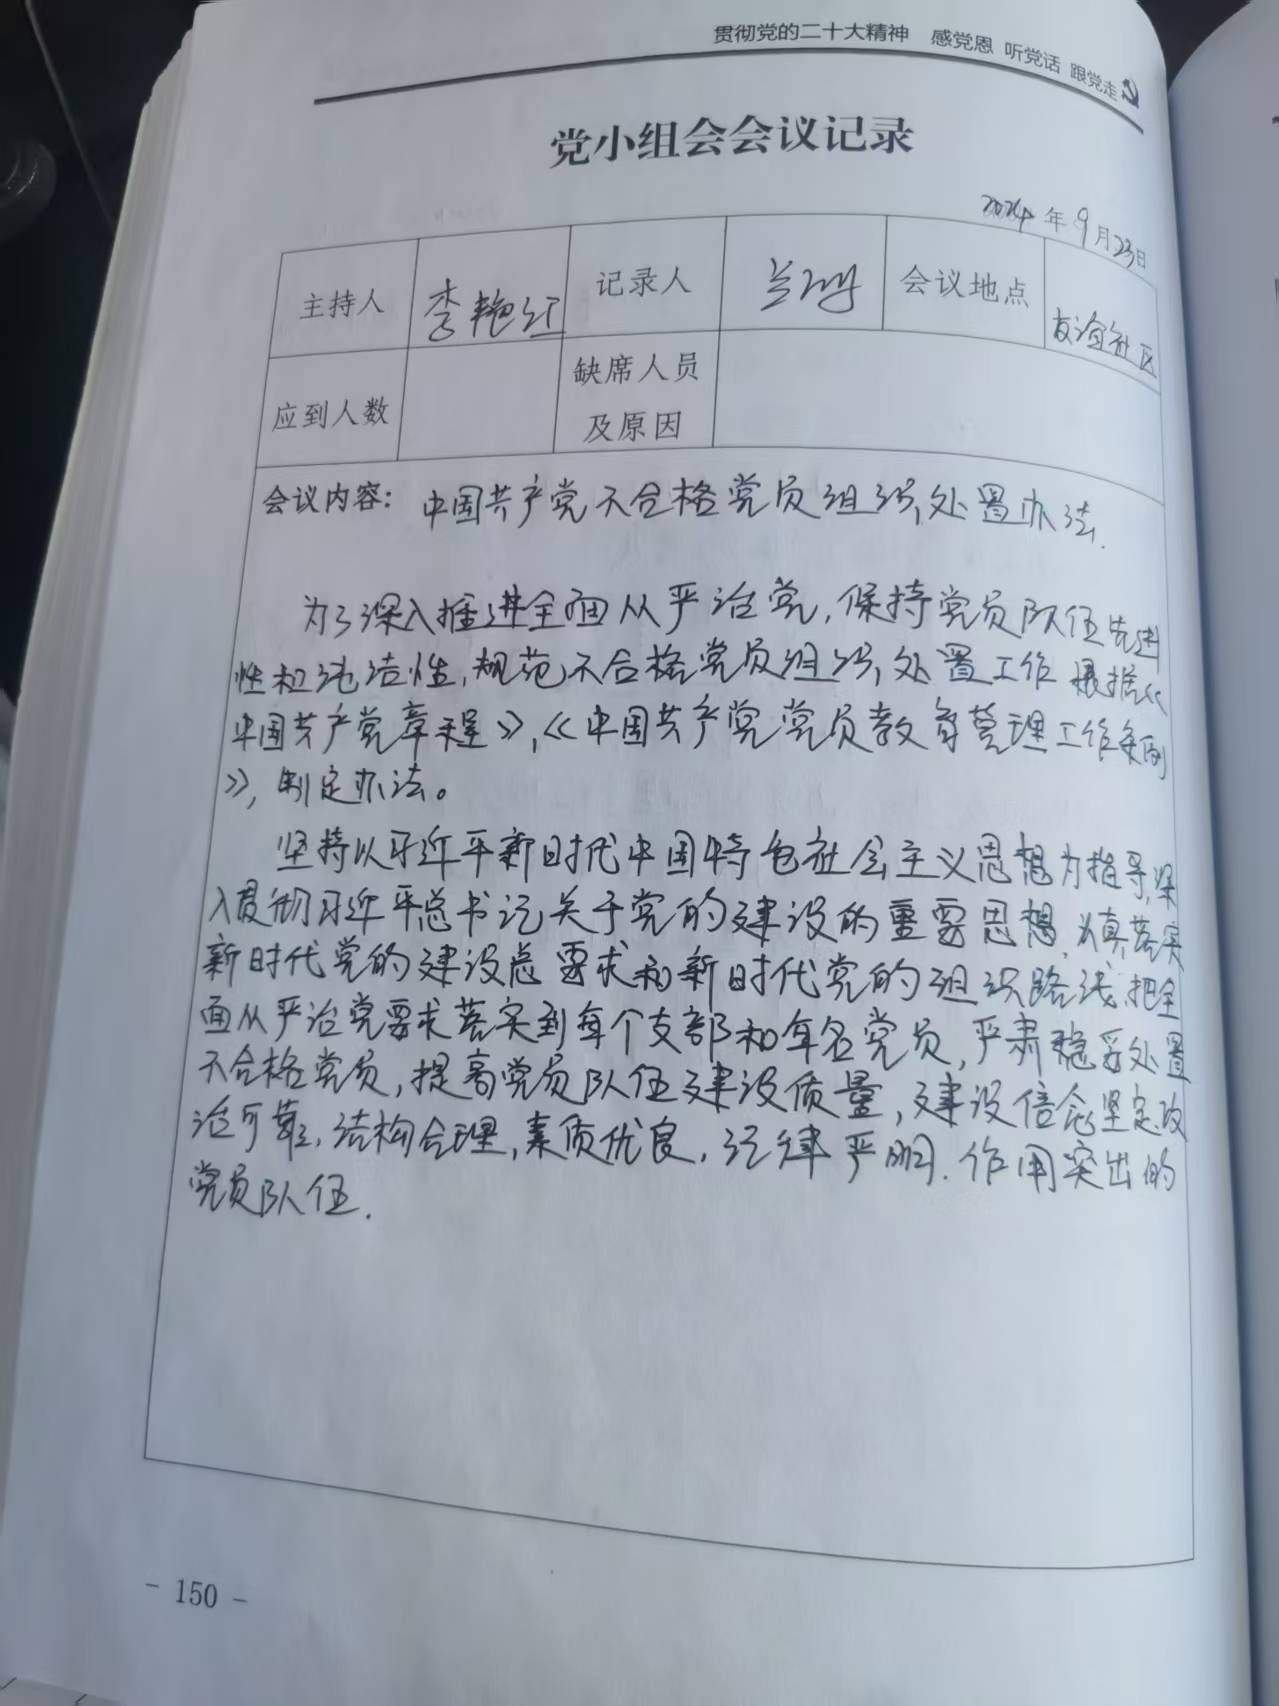 贯彻党的二十大精神 感党恩 听党话 跟党走
党小组会会议记录
2024年9月23日
主持人 李艳红 记录人 会议地点 友谊社区
应到人数 缺席人员及原因
会议内容：中国共产党不合格党员组织处置办法.
为了深入推进全面从严治党,保持党员队伍先进
性和纯洁性,规范不合格党员组织处置工作 根据《
中国共产党章程》,《中国共产党党员教育管理工作条例
》,制定办法。
坚持以习近平新时代中国特色社会主义思想为指导,深
入贯彻习近平总书记关于党的建设的重要思想,认真落实
新时代党的建设总要求和新时代党的组织路线,把全
面从严治党要求落实到每个支部和每名党员,严肃稳妥处置
不合格党员,提高党员队伍建设质量,建设信念坚定,政
治可靠,结构合理,素质优良,纪律严明.作用突出的
党员队伍.
- 150 -